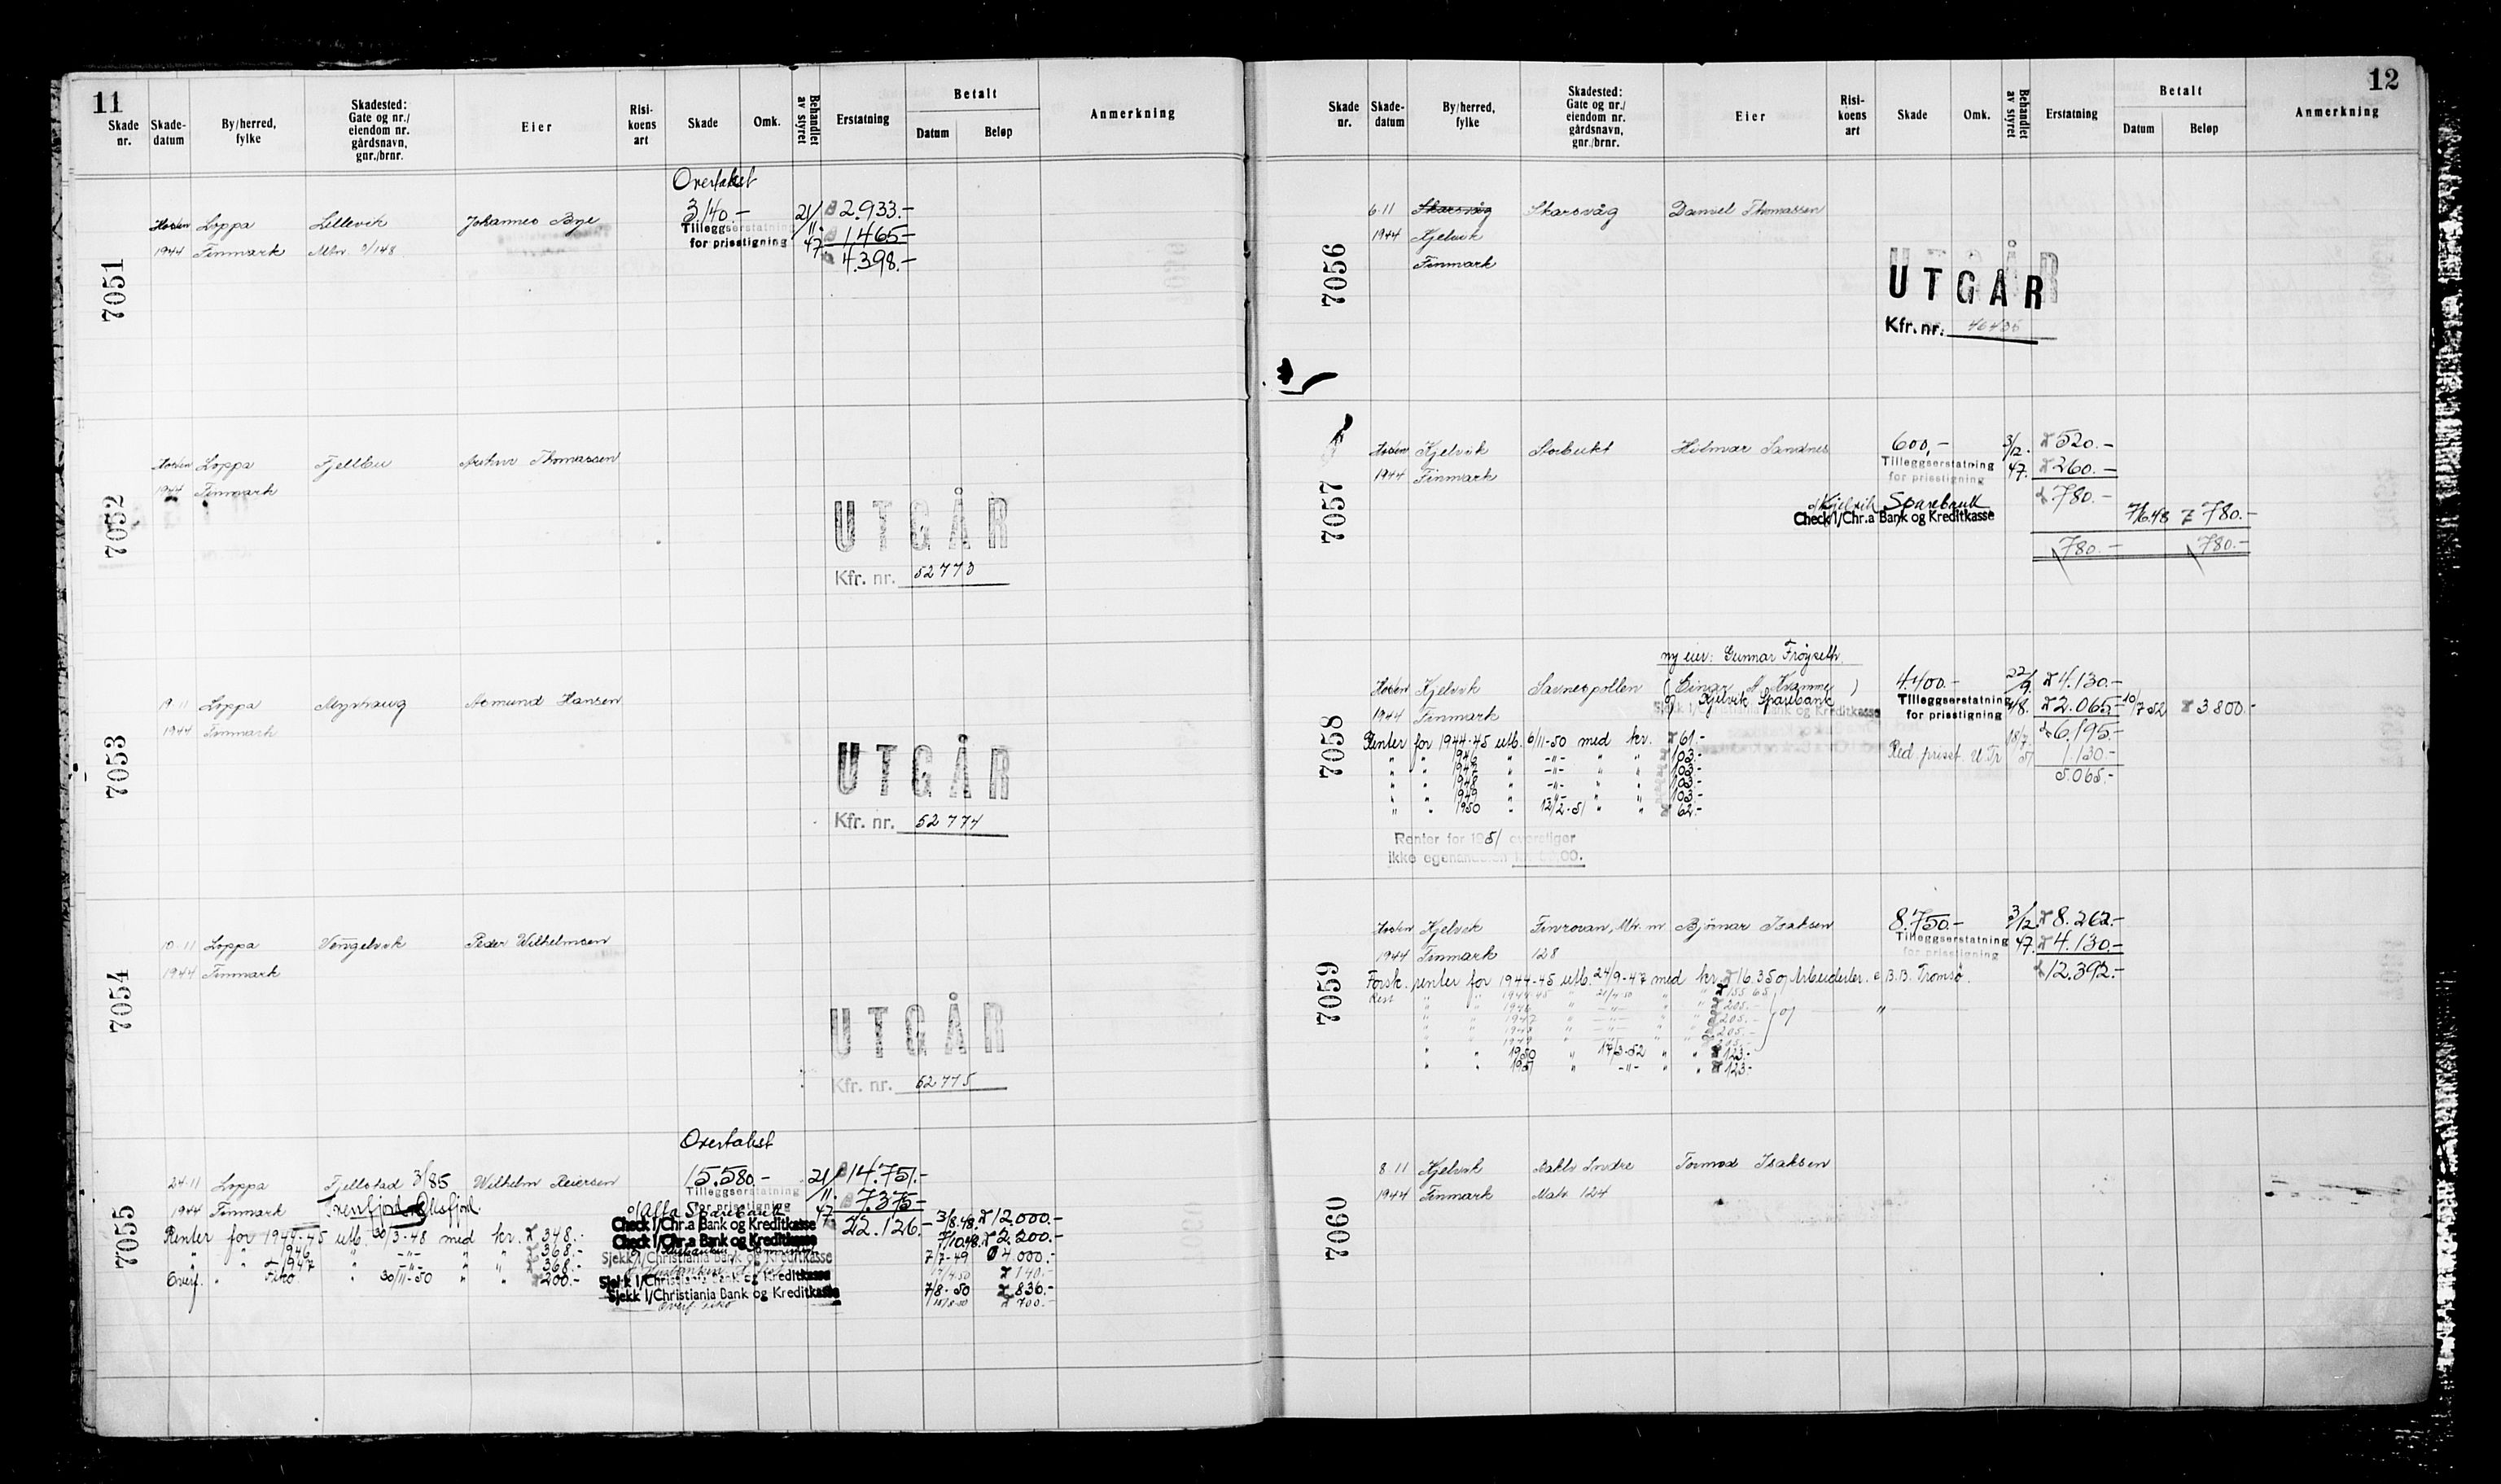 11
Skade nr. Skade-datum By/herred, fylke Skadested: Gate og nr./ eiendom nr. gårdsnavn, gnr./brnr. Eier Risi-koens art Skade Omk. Behandlet av styret Erstatning Betalt Datum Beløp Anmerkning
Overtakst
7051 Høsten Loppa Lillevik Johannes Bye 3140.- 21/ 2.933.-
1944 Finmark Mbr. 2/148 Tilleggserstatning for prisstigning 11. 47 1.465.-
4.398.-
7052 Høsten Loppa Fjellbu Arthur Thomassen
1944 Finmark
UTGÅR
Kfr. nr. 52773
7053 19.11 Loppa Myrhaug Asmund Hansen
1944 Finmark
UTGÅR
Kfr. nr. 52774
7054 10.11 Loppa Vengelvik Peder Wilhelmsen
1944 Finmark
UTGÅR
Kfr. nr. 52775
Overtakst
7055 24.11 Loppa Fjellstad 3/85 Wilhelm Reiersen 15.580.- 21/ 14.751.-
1944 Finmark Tilleggserstatning for prisstigning 11. 47 7.375.-
Alta Sparebank
Check 1/Chr.a Bank og Kreditkasse 22.126.- 3/8.48. 12.000.-
Renter for 1944-45 utb. 30/3-48 med kr. 348.-
Check 1/Chr.a Bank og Kreditkasse 7/10.48. 2.200.-
" " 1946 " -"- " " 368.-
Sjekk 1/Christiania Bank og Kreditkasse 7/7-49 4.000.-
" " 1947 " -"- " " 368.-
17/4.50 140.-
Overf. " Fiko " 30/11-50 " " 200.-
Sjekk 1/Christiania Bank og Kreditkasse
Sjekk 1/Christiania Bank og Kreditkasse 7/8-50 836.-
Overf. Fiko 700.-
12
Skade nr. Skade-datum By/herred, fylke Skadested: Gate og nr./ eiendom nr. gårdsnavn, gnr./brnr. Eier Risi-koens art Skade Omk. Behandlet av styret Erstatning Betalt Datum Beløp Anmerkning
7056 6.11 Skarsvåg Skarsvåg Daniel Thomassen
1944 Kjelvik
Finmark
UTGÅR
Kfr. nr. 46436
7057 Høsten Kjelvik Storbukt Hilmar Sandnes 600,- 3/12. 520.-
1944 Finmark Tilleggserstatning for prisstigning 47. 260.-
780.-
Kjelvik Sparebank
Check 1/Chr.a Bank og Kreditkasse 7/6.48 780.-
780.- 780.-
ny eier: Gunnar Frøyseth
7058 Høsten Kjelvik Sarnespollen (Einar A. Kramme) 4.400.- 22/9. 4.130.-
1944 Finmark Kjelvik Sparebank Tilleggserstatning for prisstigning 48. 2.065.- 10/7 52 3.800.-
Sjekk 1/Christiania Bank og Kreditkasse
6.195.-
Renter for 1944-45 utb. 6/11-50 med kr. 61.-
Red. prisst. 18/7 51 1.130.-
5.065.-
" " 1946 " -"- " " 103.-
" " 1947 " -"- " " 103.-
" " 1948 " -"- " " 103.-
" " 1949 " -"- " " 103.-
" " 1950 " 13/2-51 " " 62.-
Renter for 1951 overstiger
ikke egenandelen
7059 Høsten Kjelvik Finrovan, Mtr. nr Bjørnar Isaksen 8.750.- 3/12. 8.262.-
1944 Finmark 128 Tilleggserstatning for prisstigning 47. 4.130.-
12.392.-
Forsk. renter for 1944-45 utb. 24/9-47 med kr. 16.35 Arbeiderler. B.B. Tromsø.
Rest " " 1944-45 " 21/4-50 " " 155.65
" " 1946 " -"- " " 205.-
" " 1947 " -"- " " 205.-
" " 1948 " -"- " " 205.-
" " 1949 " -"- " " 205.-
" " 1950 " 17/3-52 " " 123.-
" " 1951 " -"- " " 123.-
7060 8.11 Kjelvik Indre Tormod Isaksen
1944 Finmark Matr. 124